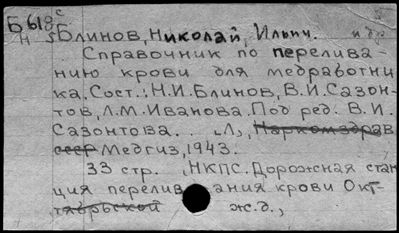 Б618с
н 5 Блинов, Николай, Ильич. и др
Справочник по перелива-
нию крови для медработни
ка. Сост.: Н.И. Блинов, В.И. Сазон-
тов, Л.М. Иванова. Под ред. В.И.
Сазонтова. . . Л., Наркомздрав
СССР Медгиз, 1943.
33 стр. , НКПС. Дорожная стан
ция перелив ания крови Окт-
тябрьской ж.д.,